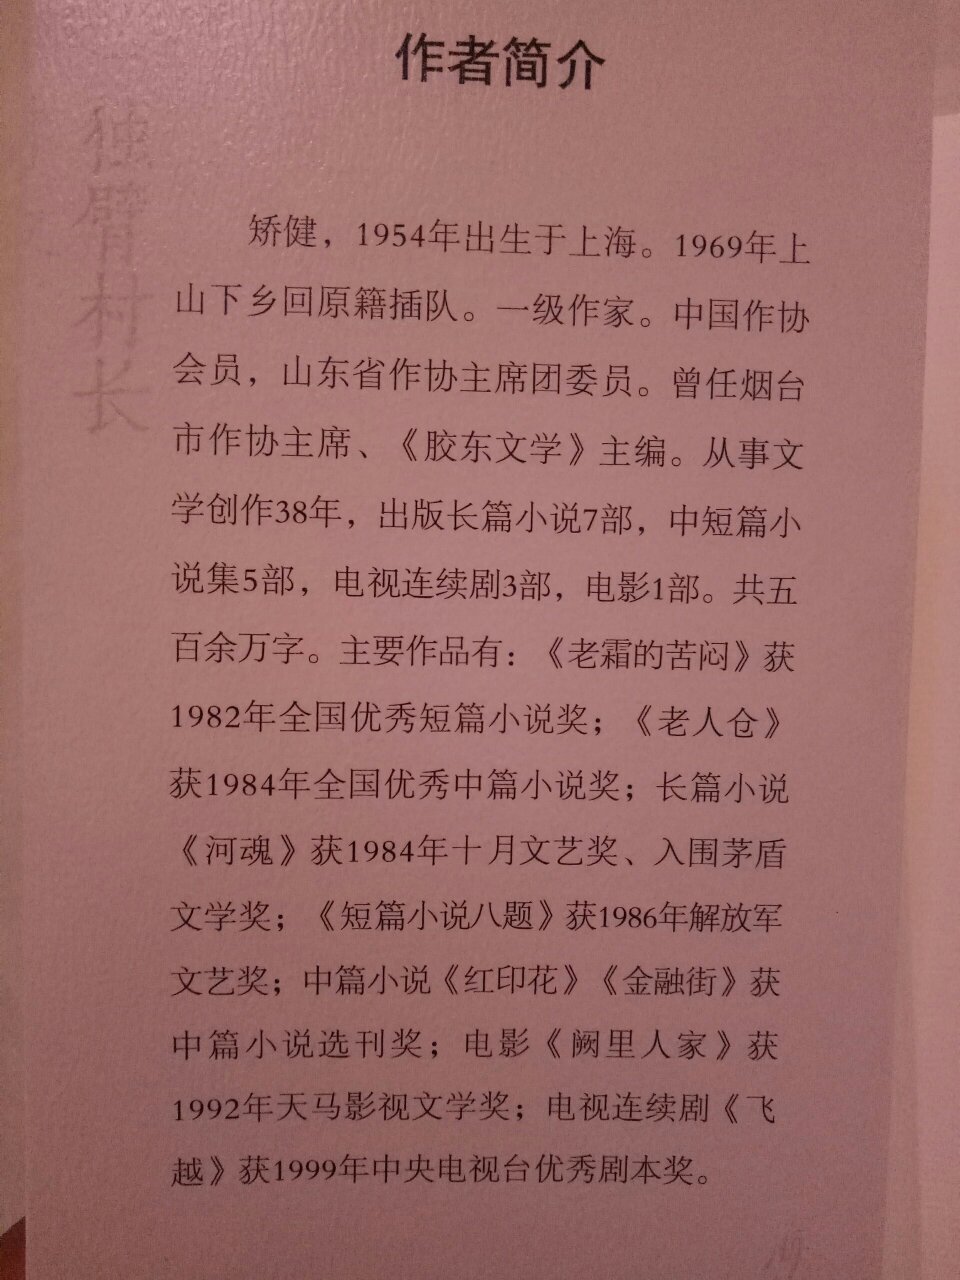 作者简介
独臂村长
矫健，1954年出生于上海。1969年上
山下乡回原籍插队。一级作家。中国作协
会员，山东省作协主席团委员。曾任烟台
市作协主席、《胶东文学》主编。从事文
学创作38年，出版长篇小说7部，中短篇小
说集5部，电视连续剧3部，电影1部。共五
百余万字。主要作品有：《老霜的苦闷》获
1982年全国优秀短篇小说奖；《老人仓》
获1984年全国优秀中篇小说奖；长篇小说
《河魂》获1984年十月文艺奖、入围茅盾
文学奖；《短篇小说八题》获1986年解放军
文艺奖；中篇小说《红印花》《金融街》获
中篇小说选刊奖；电影《阙里人家》获
1992年天马影视文学奖；电视连续剧《飞
越》获1999年中央电视台优秀剧本奖。